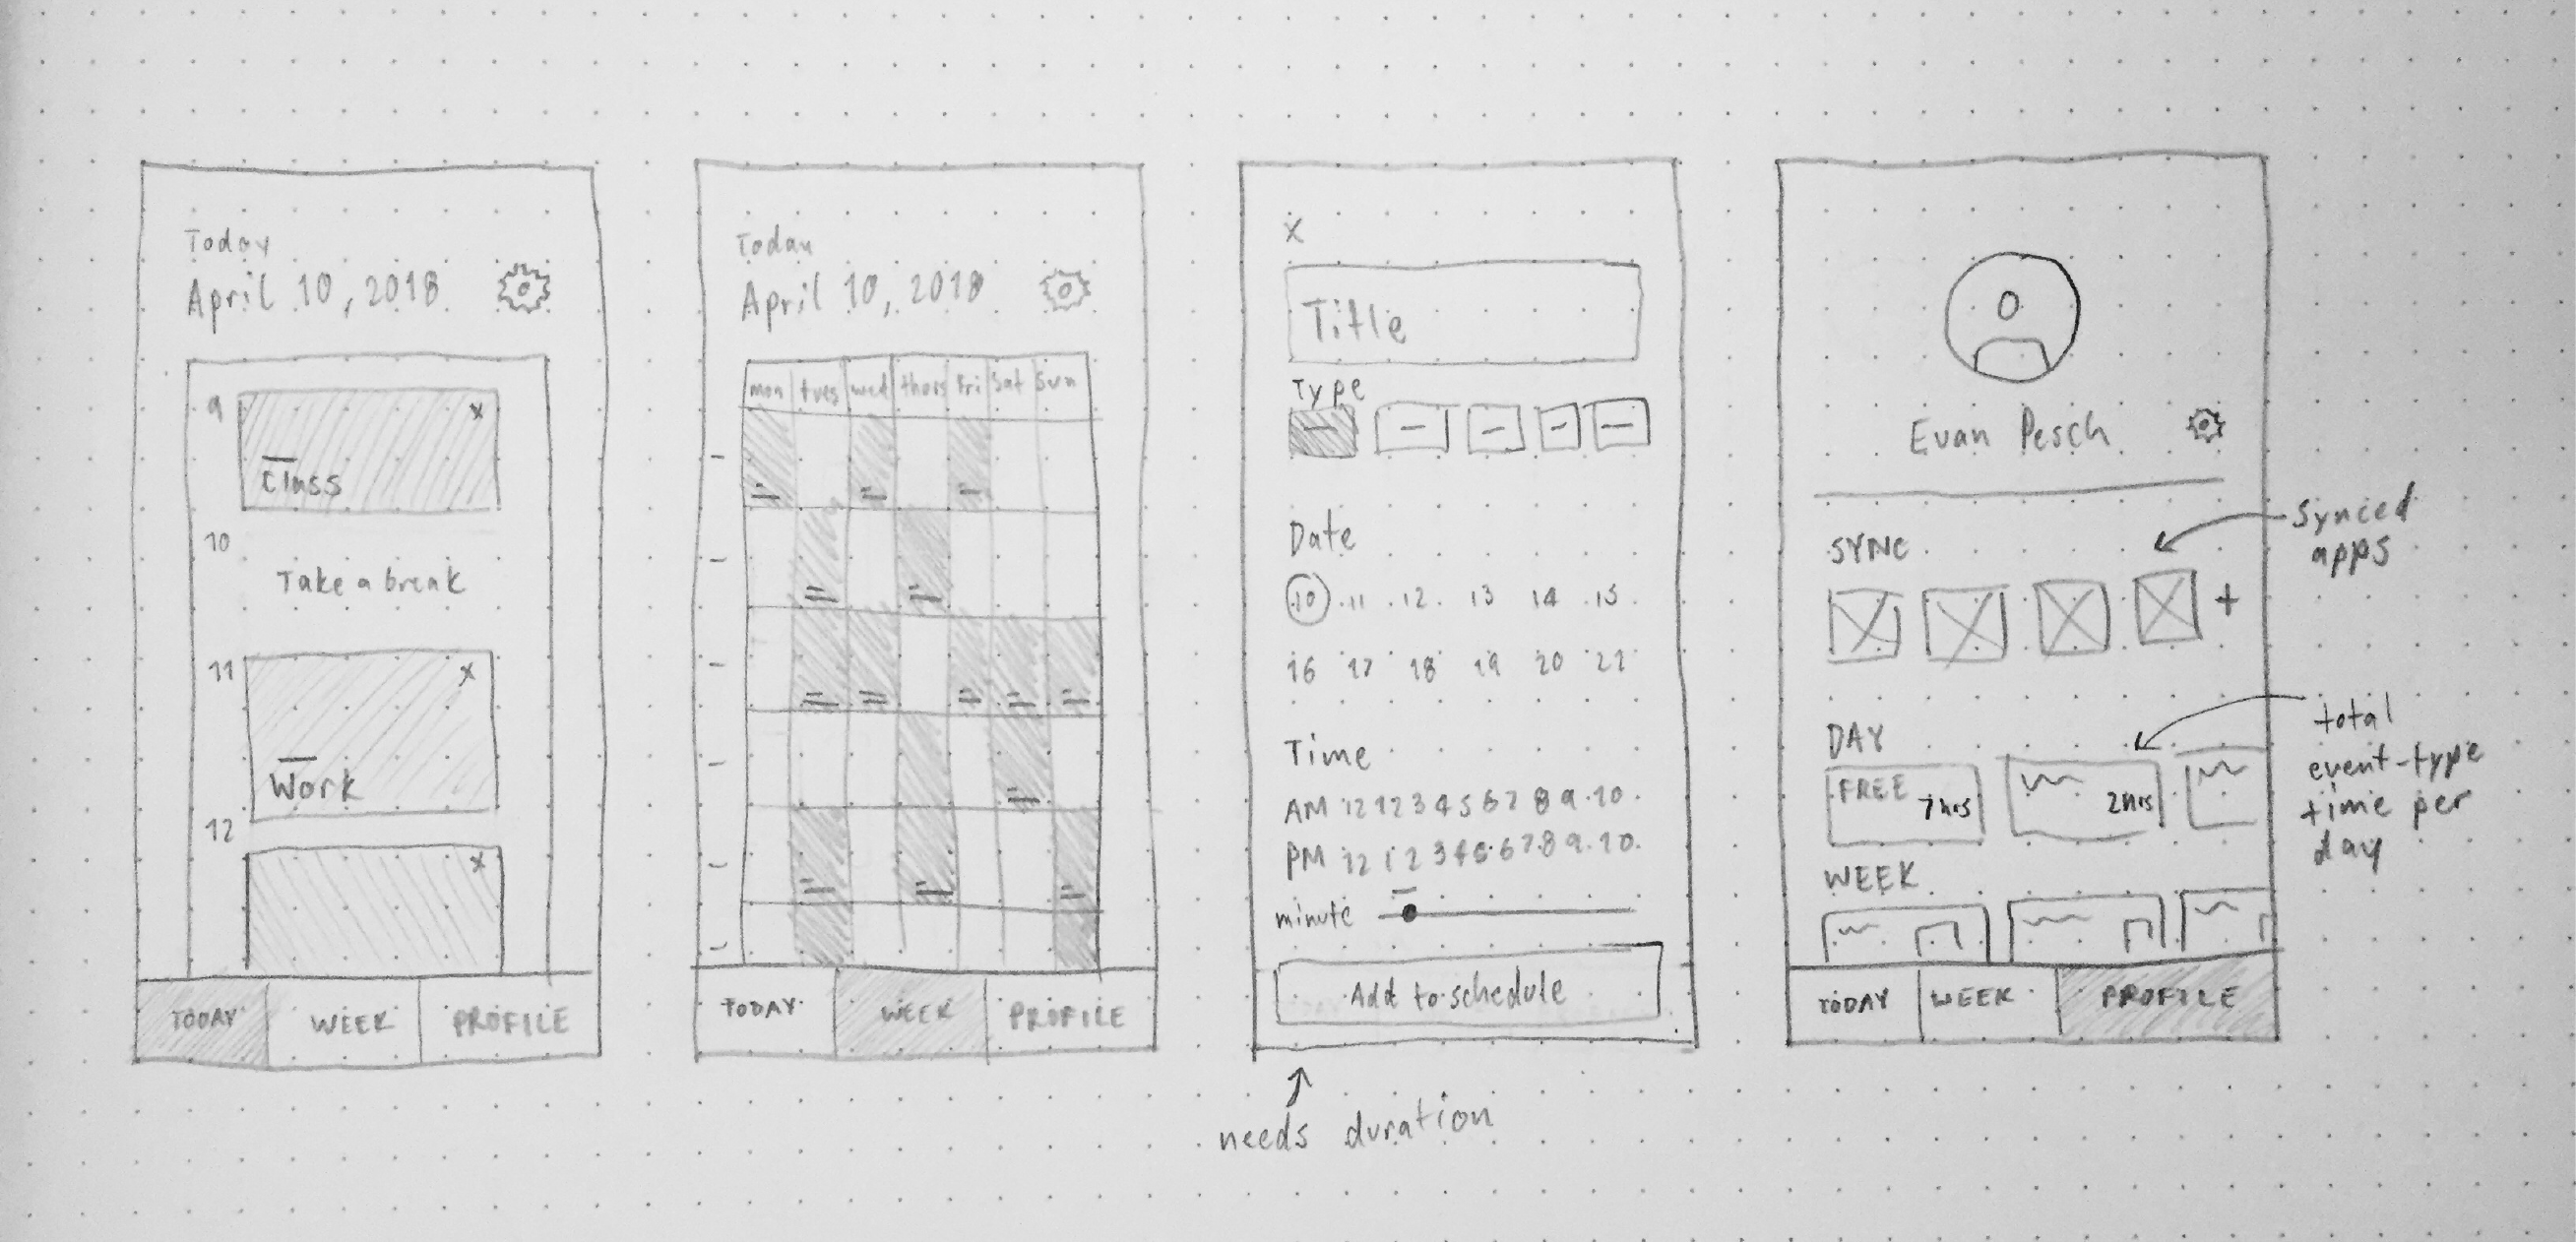 Today
April 10, 2018
9
Class
x
10
Take a break
11
x
Work
12
x
TODAY WEEK PROFILE
Today
April 10, 2018
mon tues wed thurs Fri Sat Sun
TODAY WEEK PROFILE
x
Title
Type
Date
10 11 12 13 14 15
16 17 18 19 20 21
Time
AM 12 1 2 3 4 5 6 7 8 9 10
PM 12 1 2 3 4 5 6 7 8 9 10
minute
Add to schedule
needs duration
Evan Pesch
SYNC
+
Synced
apps
DAY
FREE 7hrs
2hrs
total
event-type
time per
day
WEEK
TODAY WEEK PROFILE